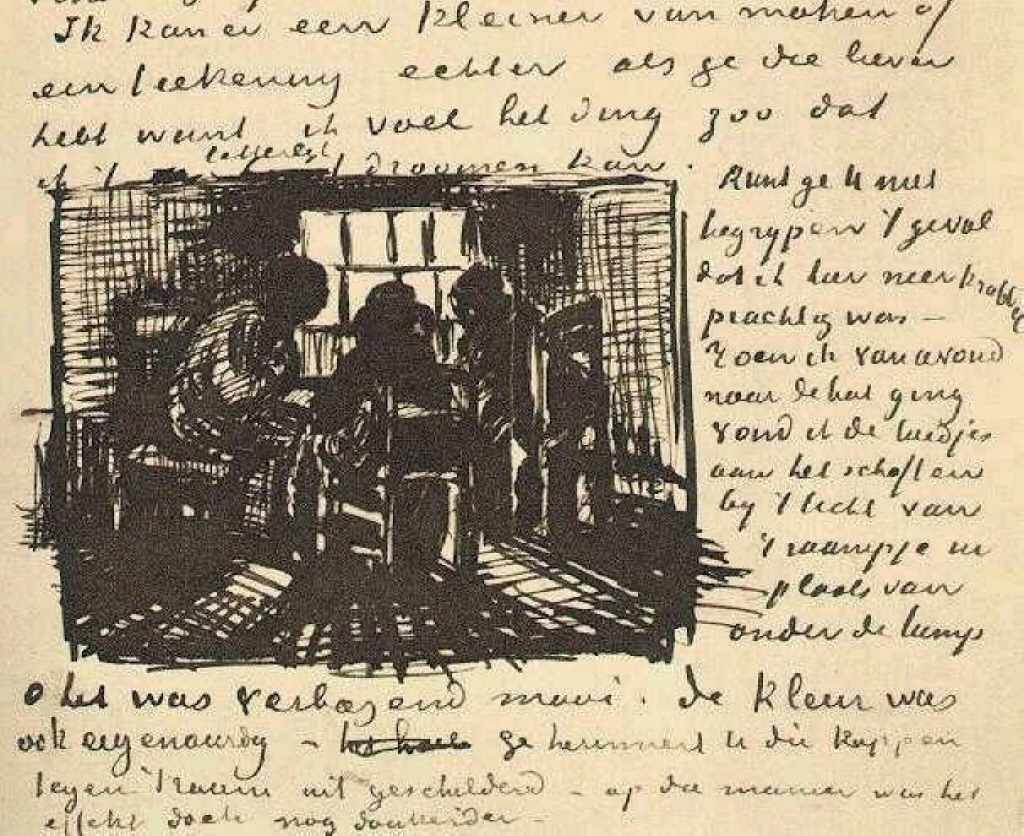 Ik kan er een kleiner van maken of
een teekening echter als ge die liever
hebt want ik voel het ding zoo dat
ik 't letterlijk droomen kan.
Kunt ge U niet
begrypen 't geval
dat ik hier neerkrabbel
prachtig was –
Toen ik van avond
naar de hut ging
vond ik de luidjes
aan het schoften
by 't licht van
't raampje in
plaats van
onder de lamp
O het was verbazend mooi. De kleur was
ook eigenaardig – ge herinnert U die koppen
tegen 't raam uit geschilderd – op die manier was het
effekt doch nog donkerder –